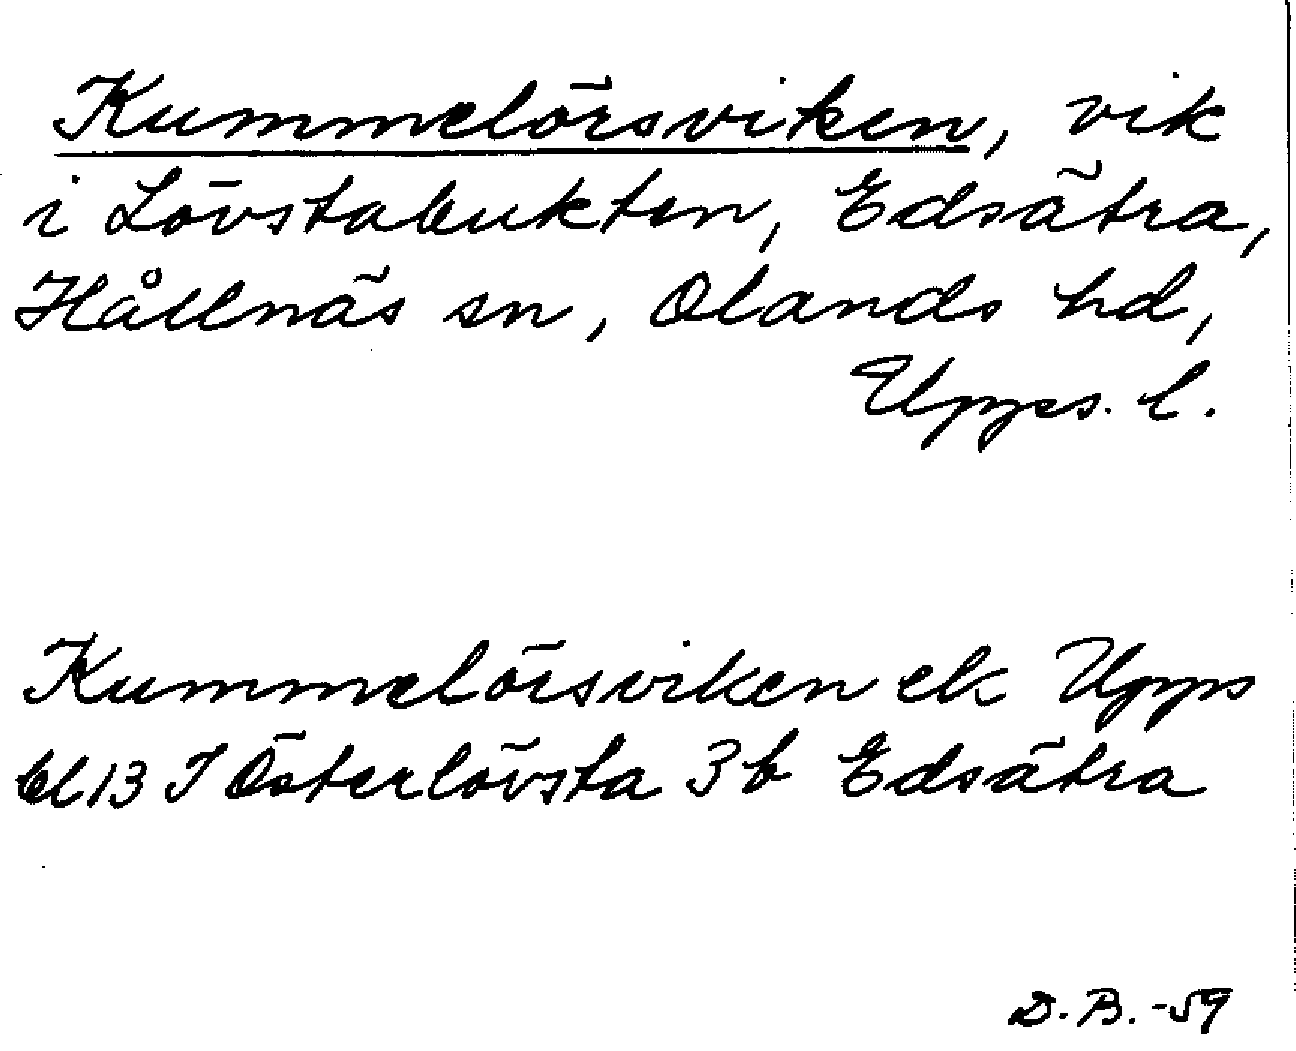 Kummelörsviken, vik
i Lövstabukten, Edsätra,
Hållnäs sn, Olands hd,
Upps. l.
Kummelörsviken ek Upps
bl 13 I Österlövsta 3 b Edsätra
D. B. -59